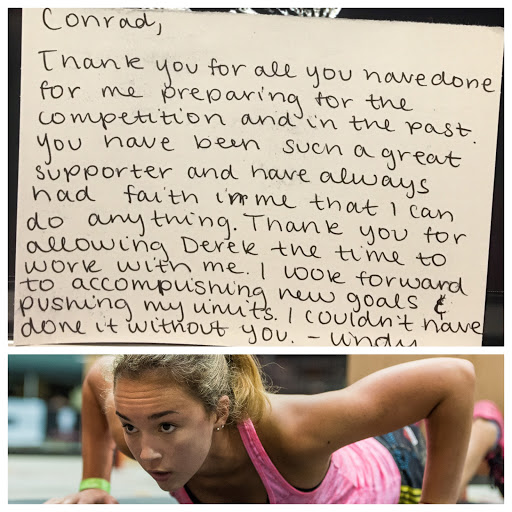 Conrad,
Thank you for all you have done
for me preparing for the
competition and in the past.
You have been such a great
supporter and have always
had faith in me that I can
do anything. Thank you for
allowing Derek the time to
work with me. I look forward
to accomplishing new goals &
pushing my limits. I couldn't have
done it without you. - Lindy